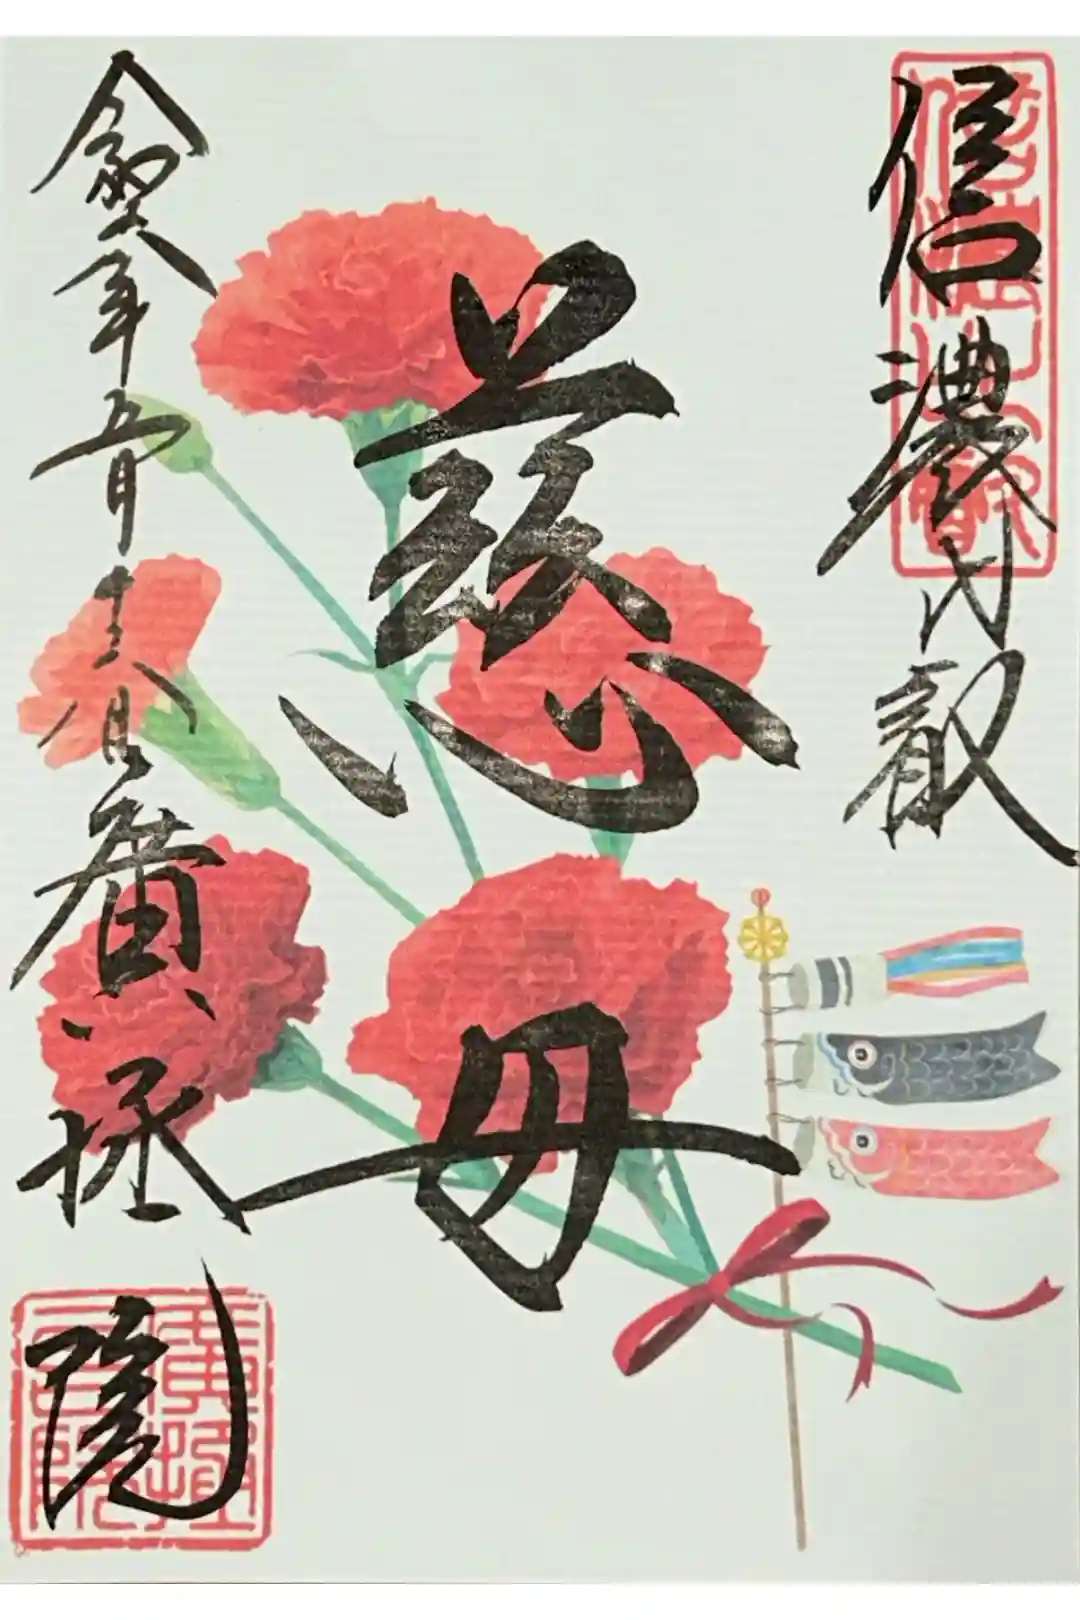 信濃比叡
慈母
令和六年五月十六日 廣拯院